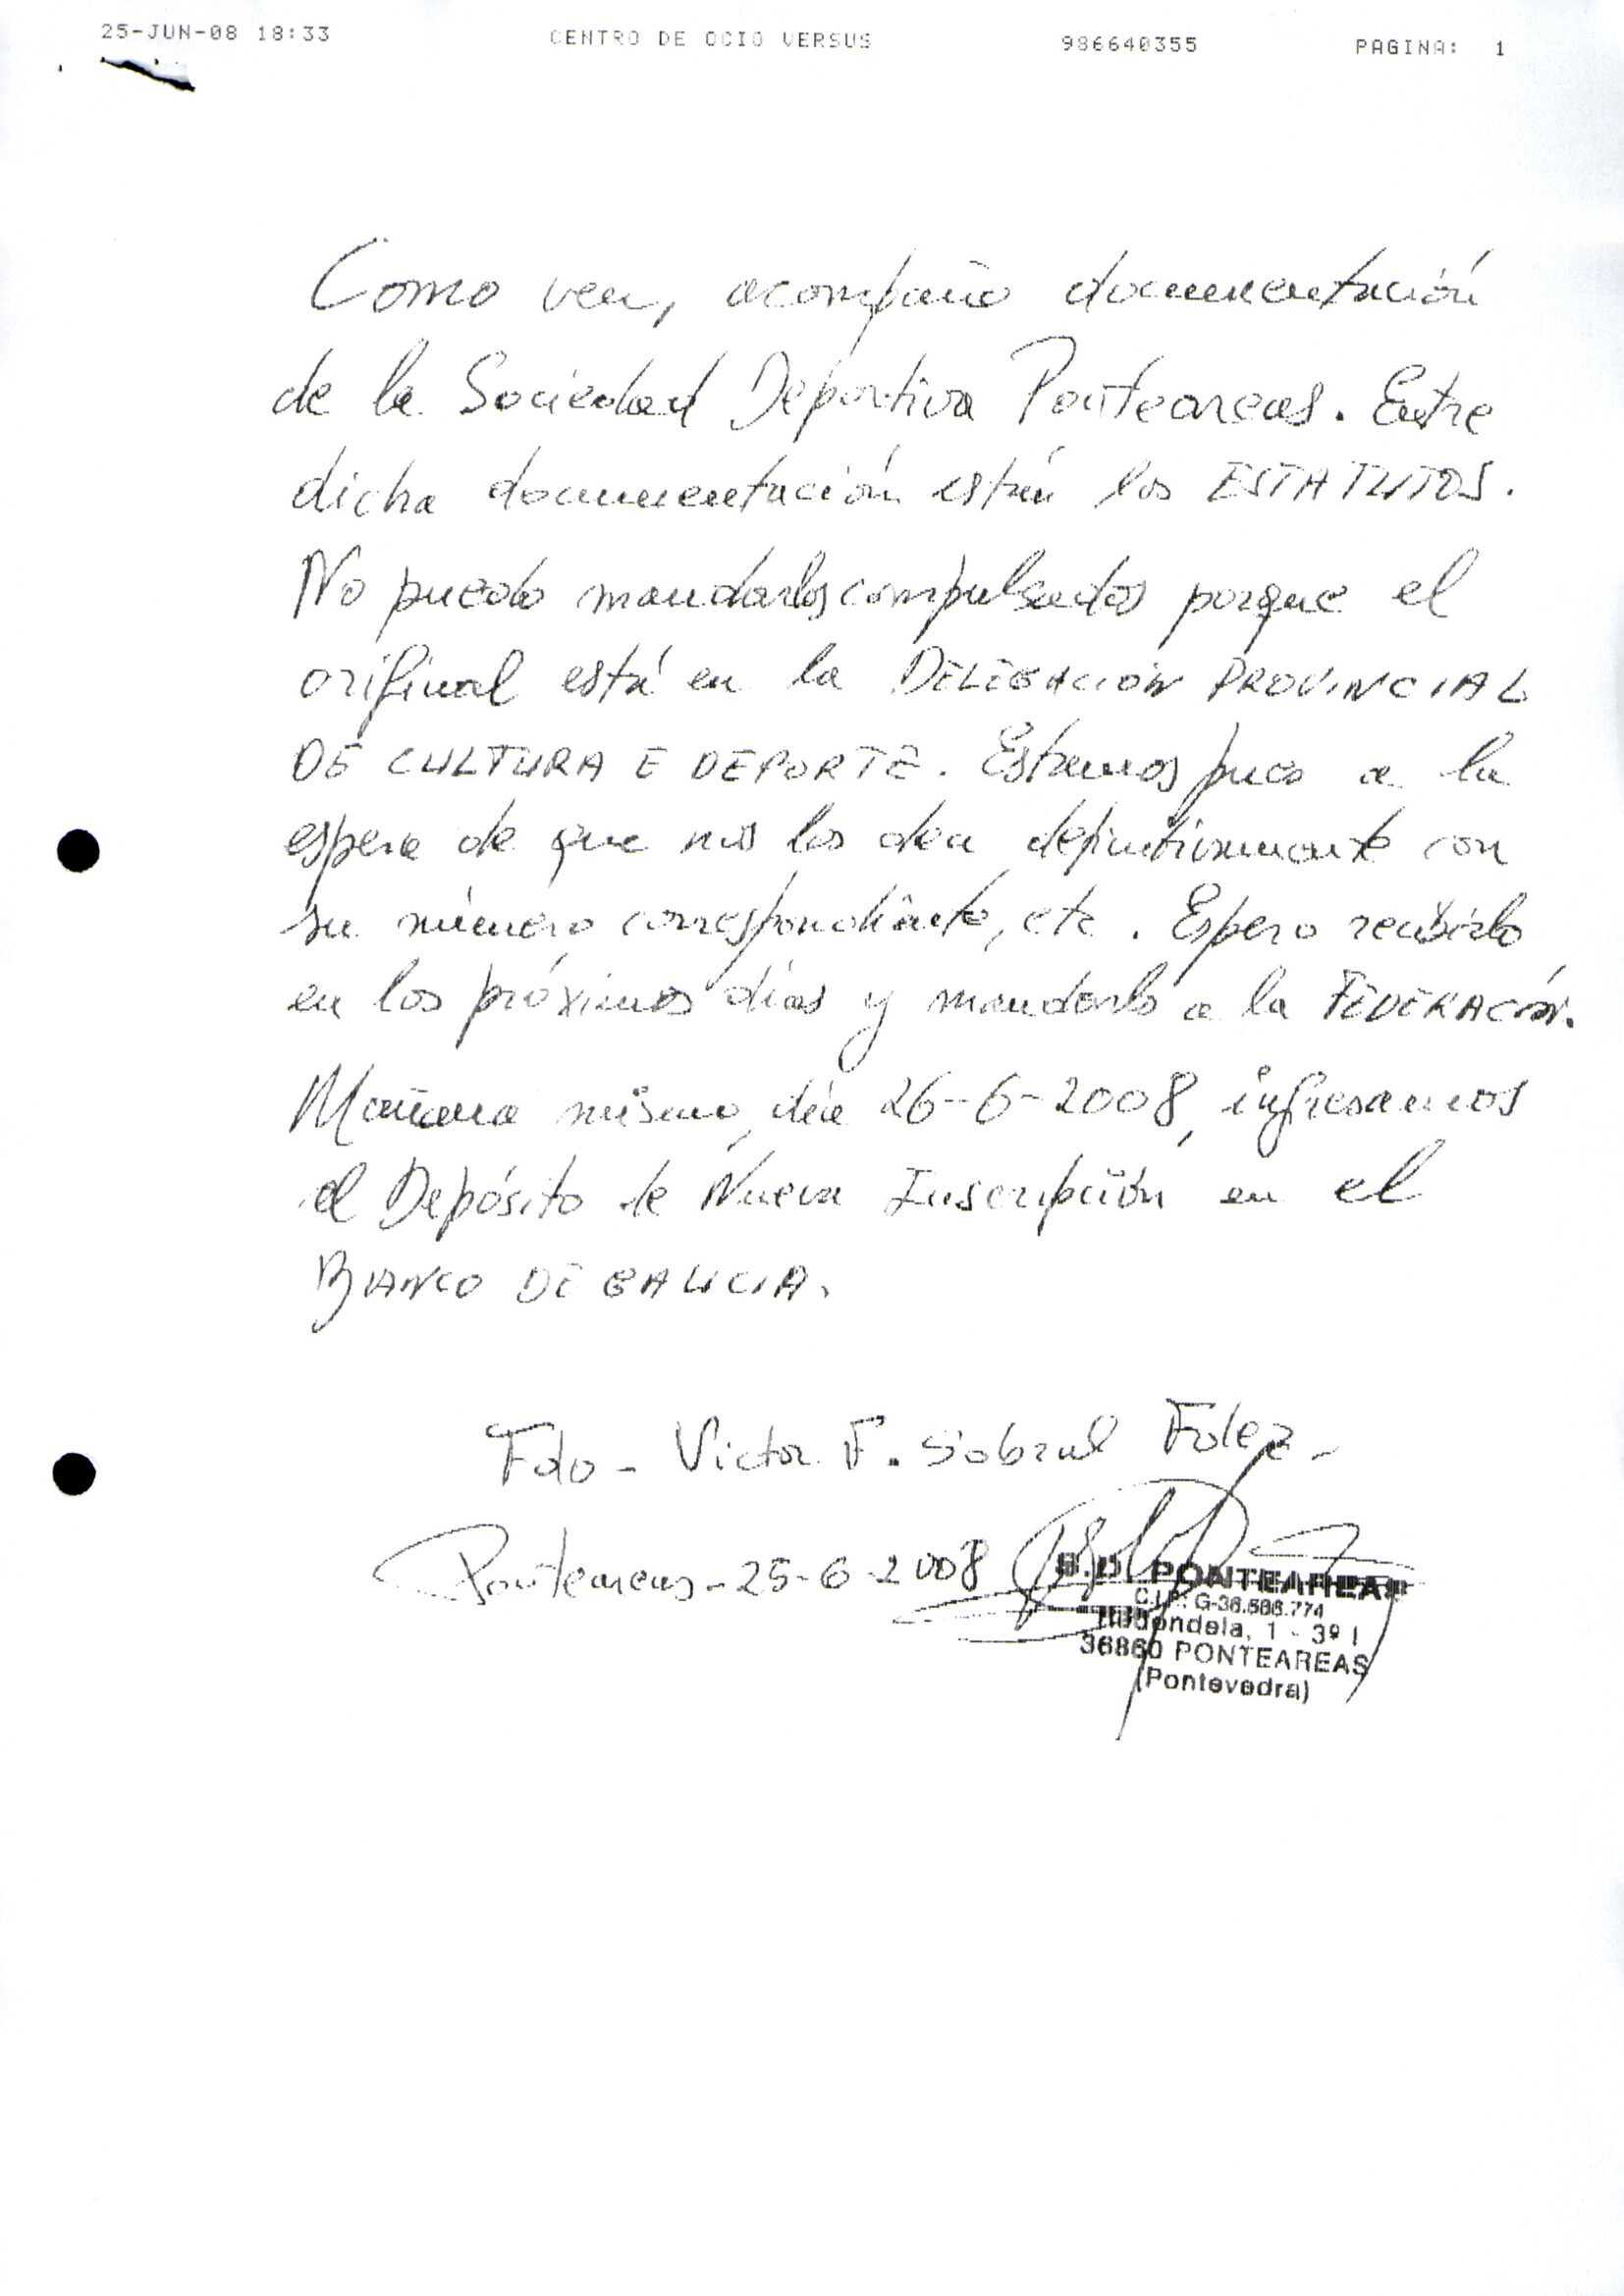 25-JUN-08 18:33 CENTRO DE OCIO VERSUS 986640355 PAGINA: 1
Como ven, acompaño documentación
de la Sociedad Deportiva Ponteareas. Entre
dicha documentación están los ESTATUTOS.
No puedo mandarlos compulsados porque el
original está en la DELEGACIÓN PROVINCIAL
DE CULTURA E DEPORTE. Estamos pues a la
espera de que nos los den definitivamente con
su número correspondiente, etc. Espero recibirlo
en los próximos días y mandarlo a la FEDERACIÓN.
Mañana mismo, día 26-6-2008, ingresamos
el Depósito de Nueva Inscripción en el
BANCO DE GALICIA.
Fdo - Victor F. Sobral Fdez -
Ponteareas - 25-6-2008
S.D. PONTEAREAS
C.I.F.: G-36.566.774
Redondela, 1 - 3º I
36860 PONTEAREAS
(Pontevedra)